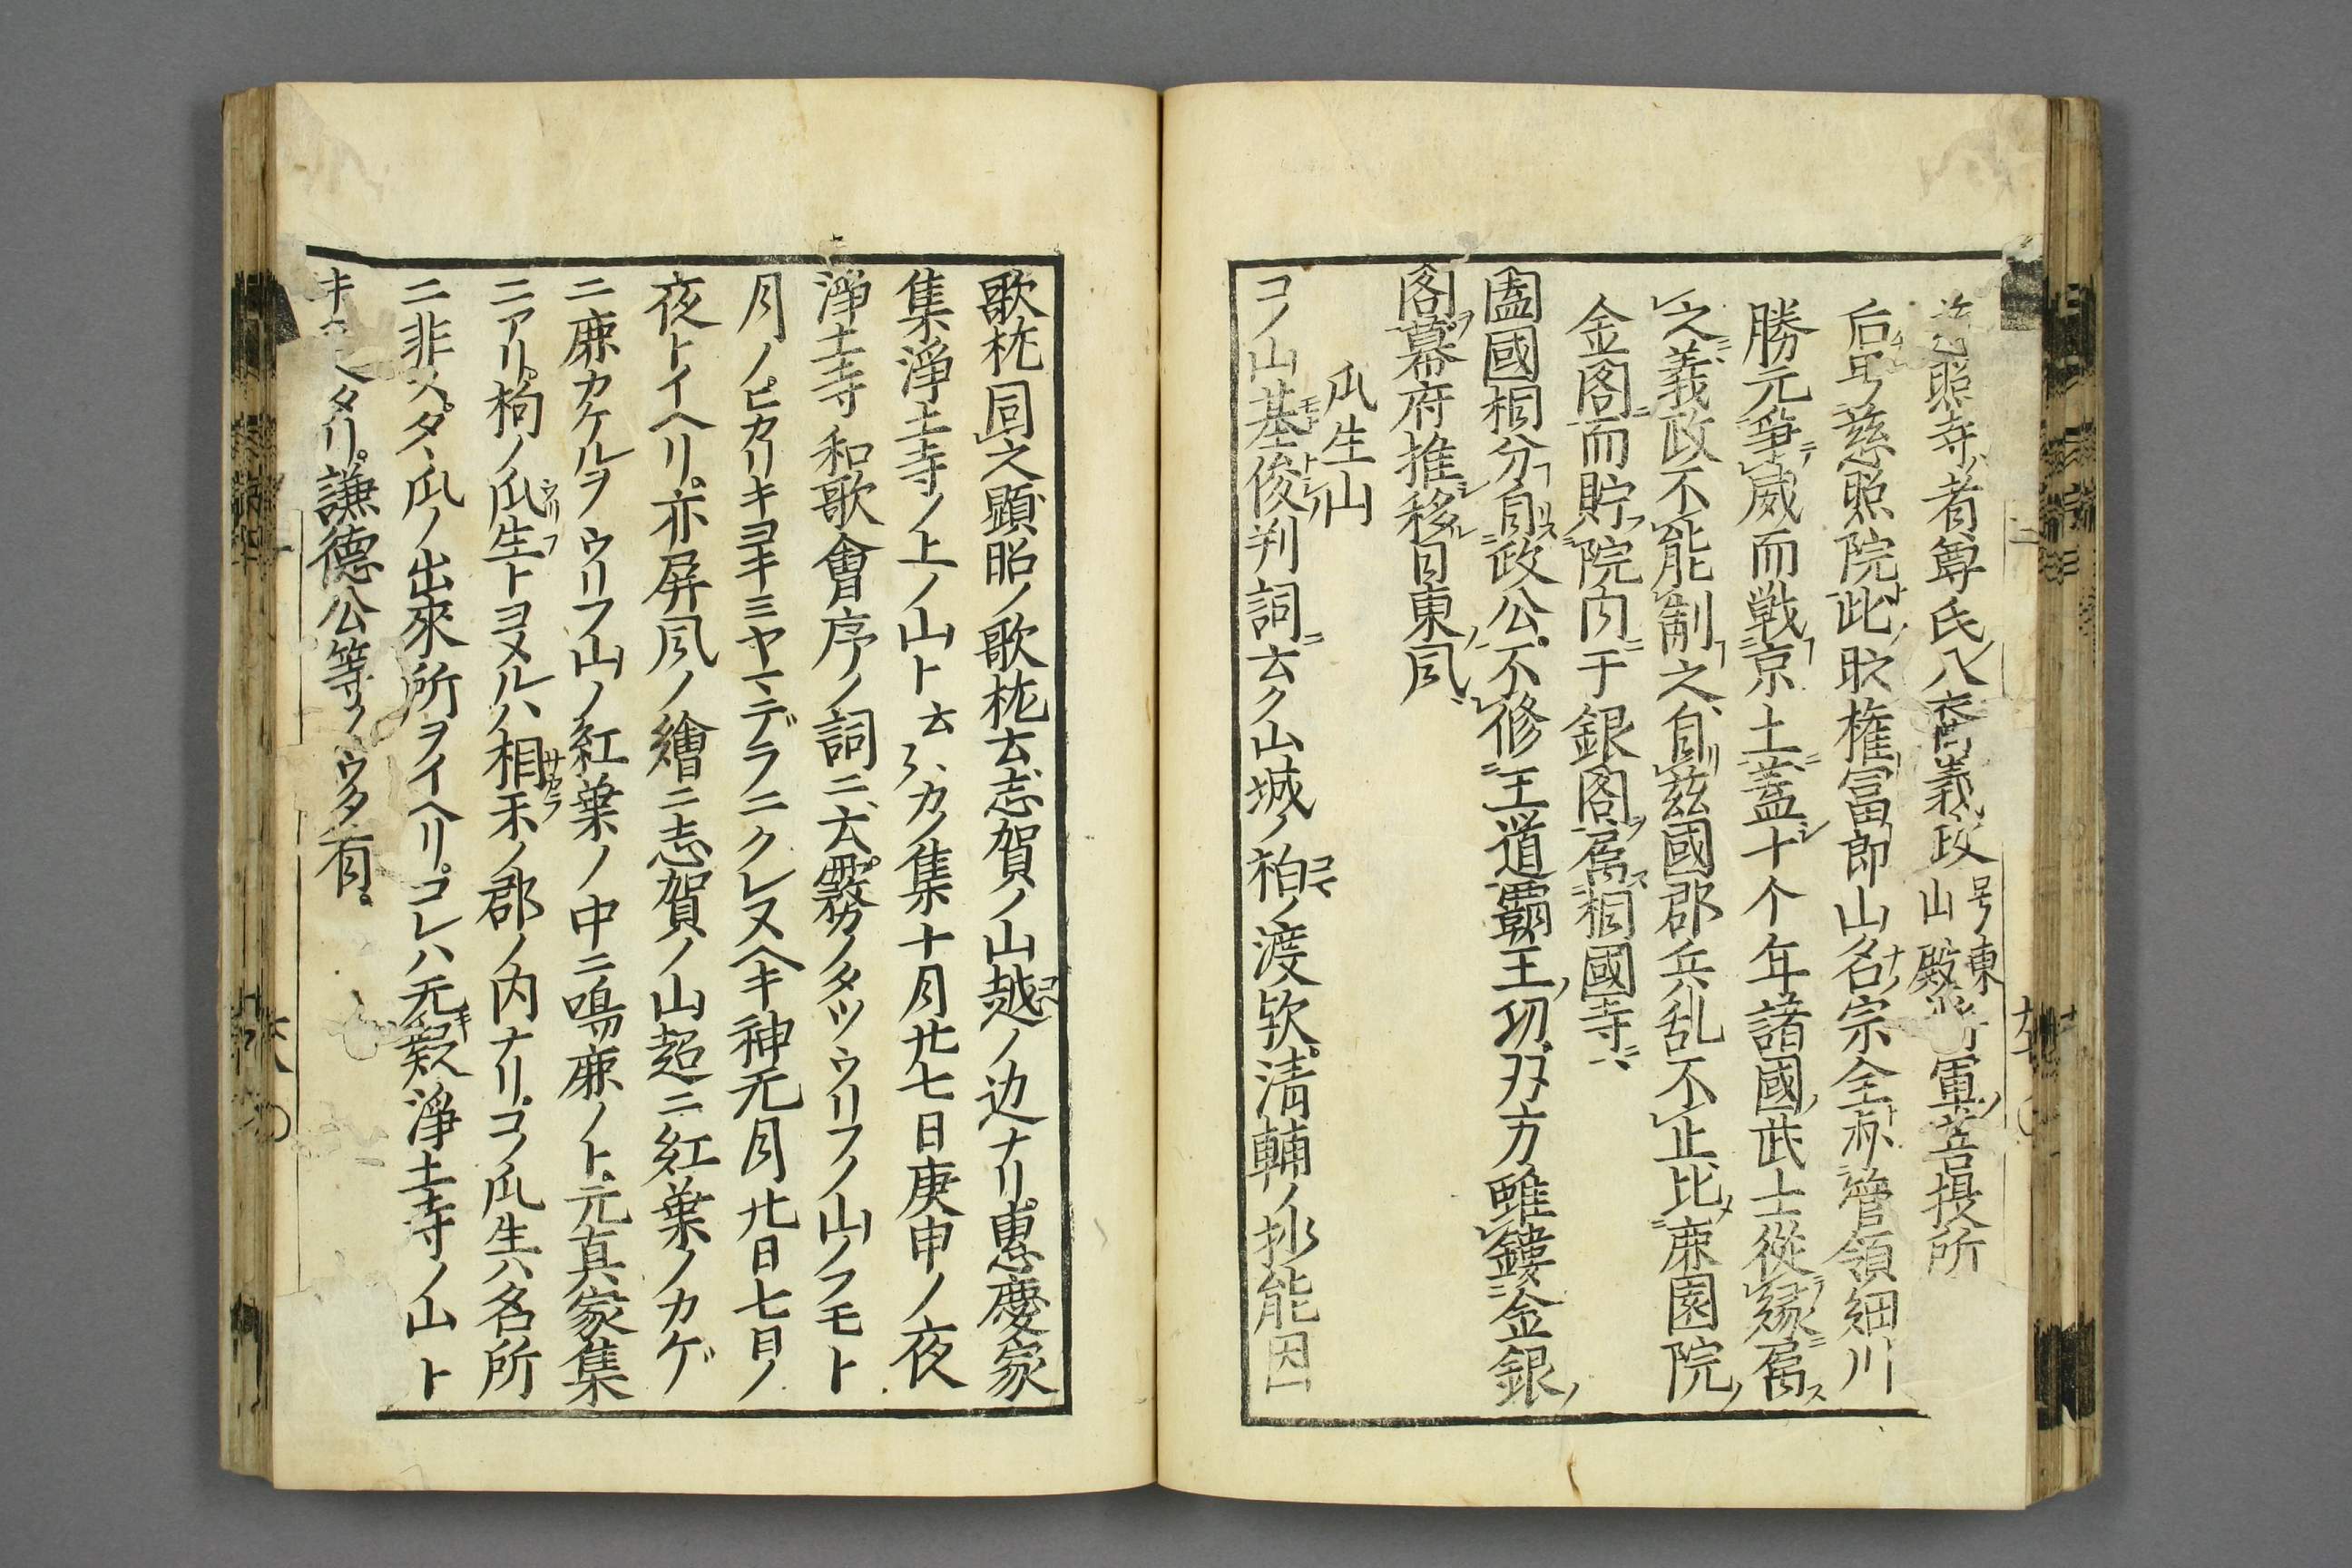 慈照寺者尊氏八裔義政号東山殿将軍菩提所
后号慈照院此時権冨郎山名宗全亦管領細川
勝元爭威而戦京土蓋十个年諸國武士從縁属
之義政不能制之自茲國郡兵乱不止比鹿園院
金閣而貯院内于銀閣属相國寺
盍國相分自政公不修王道覇王功刄方雖鏤金銀
閣幕府推移日東風
瓜生山
コノ山基俊判詞云ク山城ノ柏ノ渡欤清輔ノ抄能因
歌枕同之顕昭ノ歌枕云志賀ノ山越ノ边ナリ惠慶家
集淨土寺ノ上ノ山ト云リカノ集十月廿七日庚申ノ夜
淨土寺和歌會序ノ詞ニ云霧ノタツウリフノ山ノフモト
月ノヒカリキヨキミヤマデラニクレヌヘキ神元月廿日七日ノ
夜トイヘリ亦屏風ノ繪ニ志賀ノ山超ニ紅葉ノカゲ
ニ鹿カケルヲウリフ山ノ紅葉ノ中ニ鳴鹿ノト元真家集
ニアリ枸ノ瓜生トヨメルハ相禾ノ郡ノ内ナリコノ瓜生ハ名所
ニ非スタヽ瓜ノ出來所ヲイヘリコレハ元叡淨土寺ノ山ト
キコヘタリ謙德公等ノウタ有